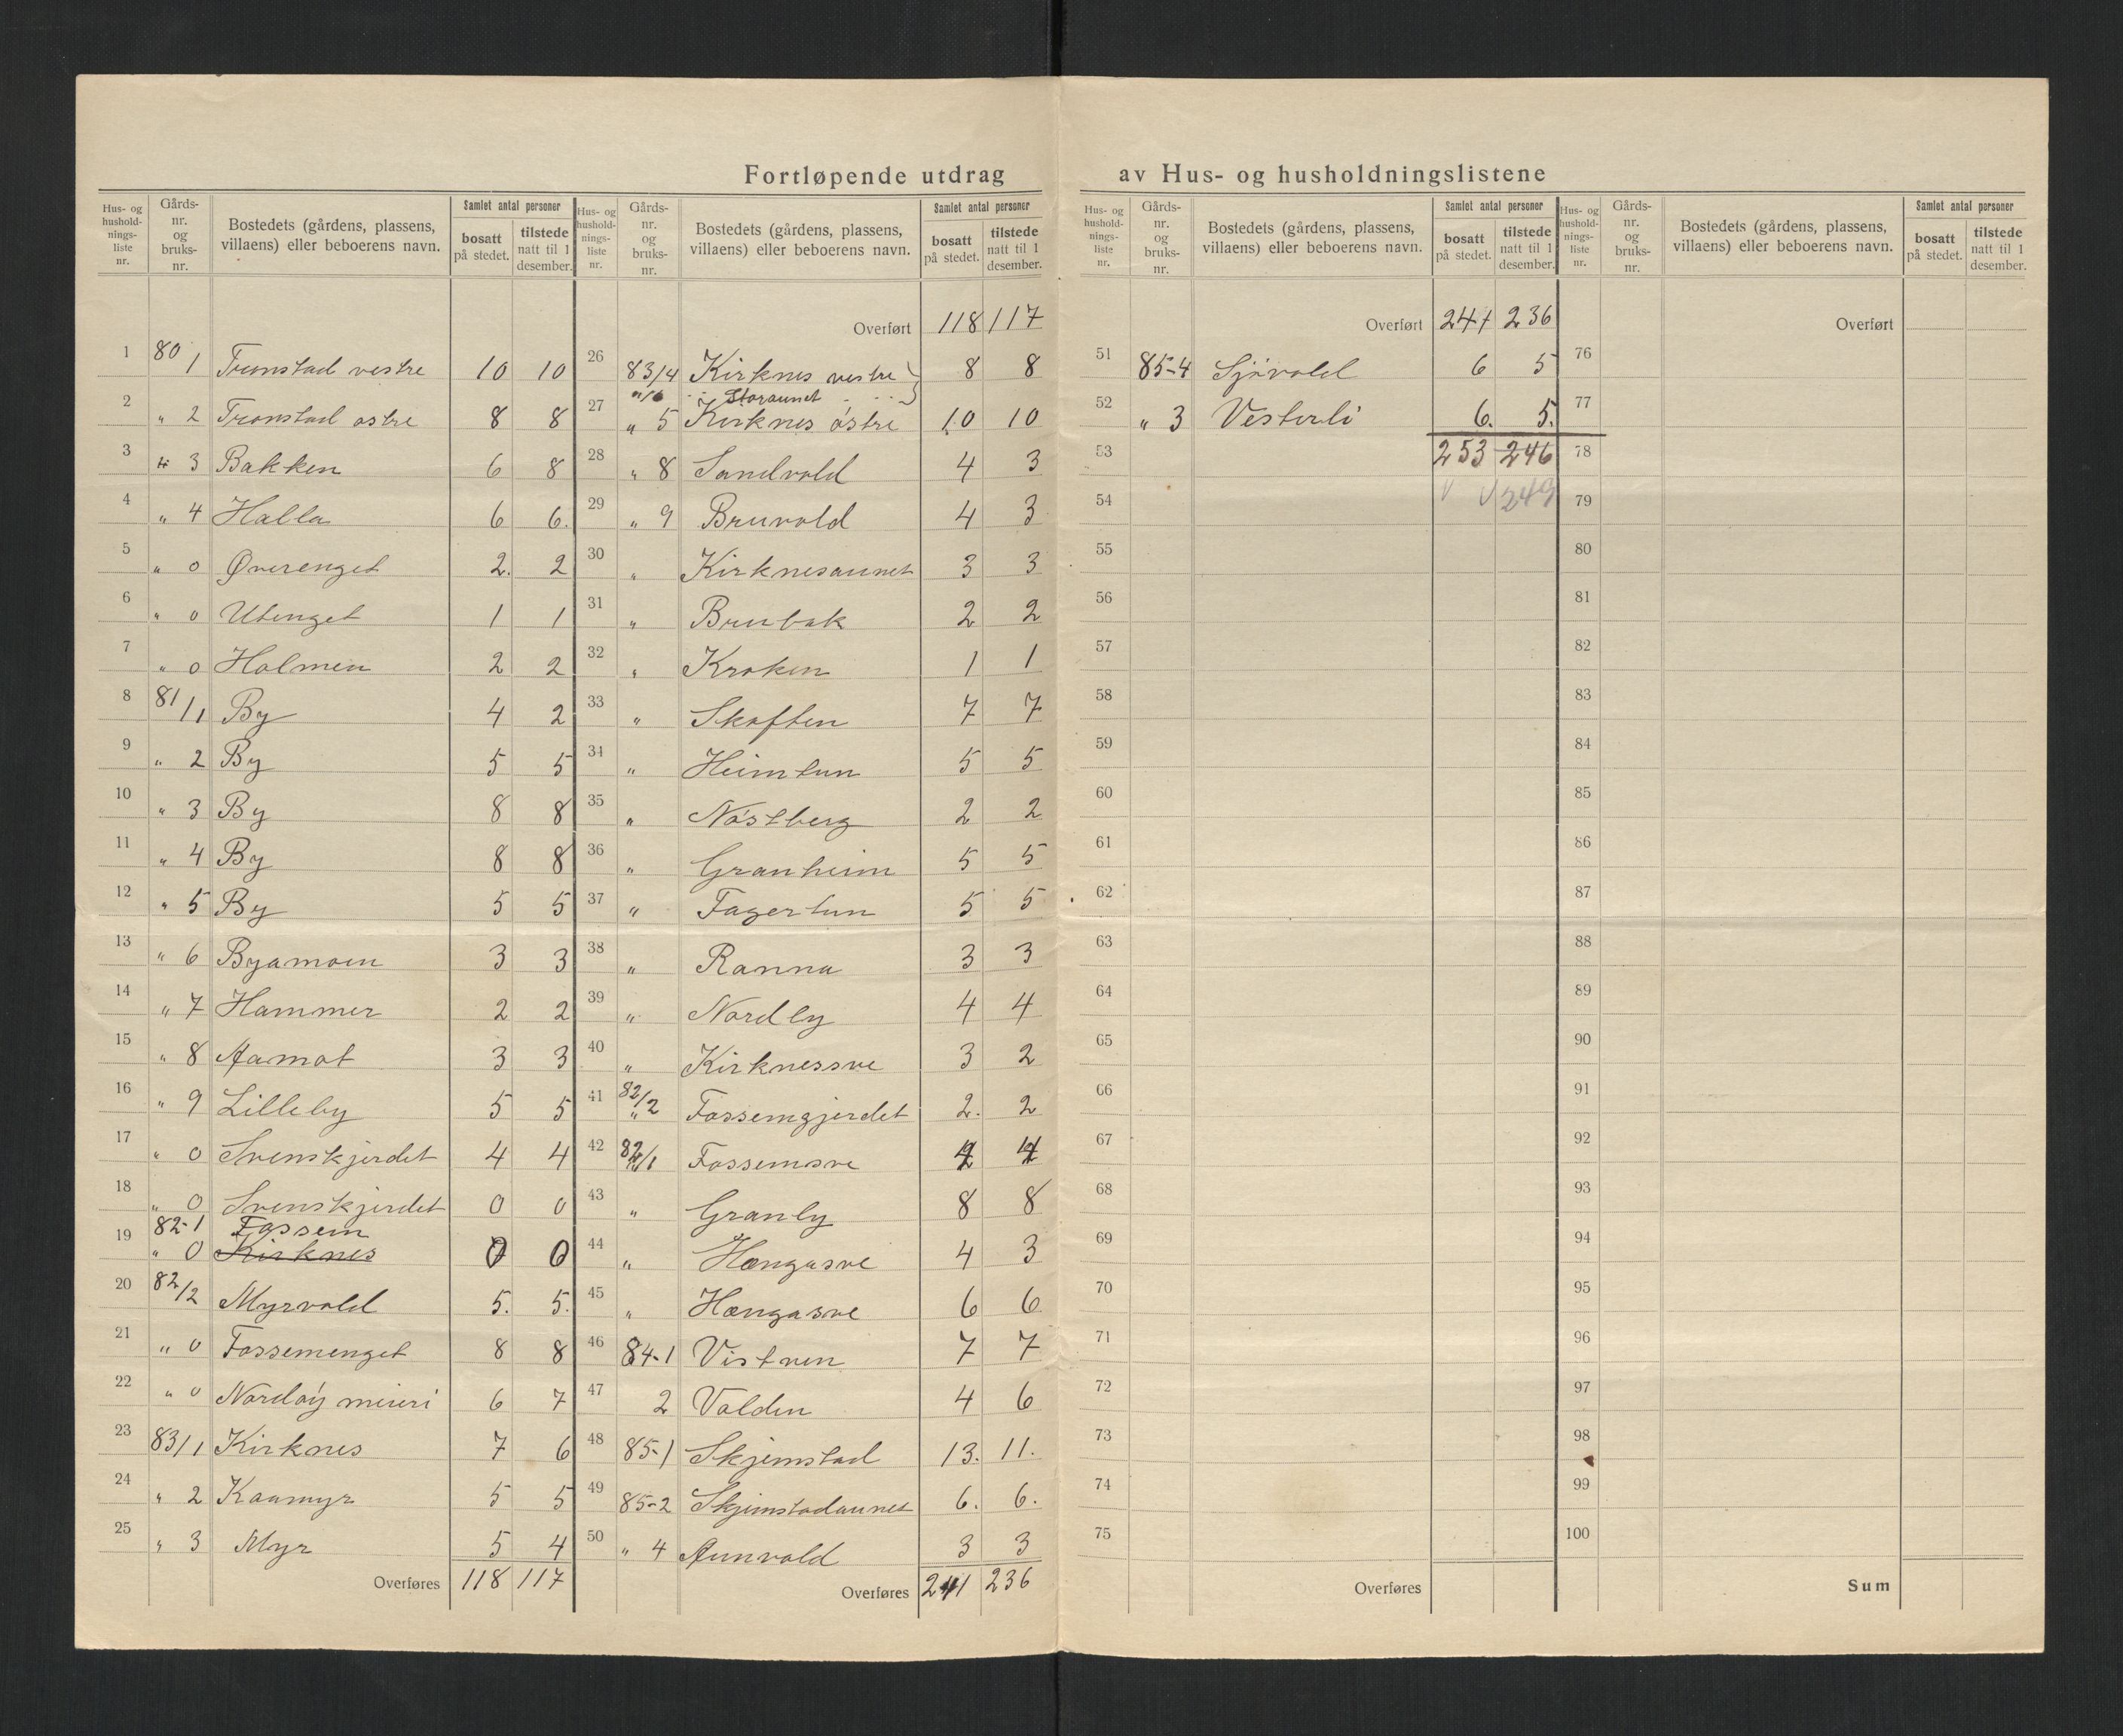 Fortløpende utdrag av Hus- og husholdningslistene
Hus- og hushold-nings-liste nr. Gårds-nr. og bruks-nr. Bostedets (gårdens, plassens, villaens) eller beboerens navn. Samlet antal personer bosatt på stedet. tilstede natt til 1 desember.
1 80/1 Tronstad vestre 10 10
2 " 2 Tronstad østre 8 8
3 " 3 Bakken 6 8
4 " 4 Halla 6 6.
5 " 0 Øverenget 2. 2
6 " 0 Utenget 1 1
7 " 0 Holmen 2 2
8 81/1 By 4 2
9 " 2 By 5 5
10 " 3 By 8 8
11 " 4 By 8 8
12 " 5 By 5 5
13 " 6 Byamoen 3 3
14 " 7 Hammer 2 2
15 " 8 Aamot 3 3
16 " 9 Lilleby 5 5
17 " 0 Svenskjerdet 4 4
18 " 0 Svenskjerdet 0 0
82-1 Fossem
19 " 0 Kirknes 0 0
20 82/2 Myrvold 5. 5.
21 " 0 Fossemenget 8 8
22 " 0 Nordøy meieri 6 7
23 83/1 Kirknes 7 6
24 " 2 Kaamyr 5 5
25 " 3 Myr 5 4
Overføres 118 117
Hus- og hushold-nings-liste nr. Gårds-nr. og bruks-nr. Bostedets (gårdens, plassens, villaens) eller beboerens navn. Samlet antal personer bosatt på stedet. tilstede natt til 1 desember.
Overført 118 117
26 83/4 Kirknes vestre 8 8
Storaunet
27 " 5 Kirknes østre 10 10
28 " 8 Sandvold 4 3
29 " 9 Bruvold 4 3
30 " Kirknesaunet 3 3
31 " Brubak 2 2
32 " Kroken 1 1
33 " Skoften 7 7
34 " Heimtun 5 5
35 " Nøstberg 2 2
36 " Granheim 5 5
37 " Fagertun 5 5
38 " Ranna 3 3
39 " Nordby 4 4
40 " Kirknessve 3 2
41 82/2 " Fossemgjerdet 2. 2
42 82/1 Fossemsve 4 4
43 " Granly 8 8
44 " Hængasve 4 3
45 " Hængasve 6 6
46 84-1 Vistven 7 7
47 2 Volden 4 6
48 85-1 Skjemstad 13. 11.
49 85-2 Skjemstadaunet 6. 6.
50 " 4 Aunvold 3 3
Overføres 241 236
Hus- og hushold-nings-liste nr. Gårds-nr. og bruks-nr. Bostedets (gårdens, plassens, villaens) eller beboerens navn. Samlet antal personer bosatt på stedet. tilstede natt til 1 desember.
Overført 241 236
51 85-4 Sjøvold 6 5
52 " 3 Vesterli 6. 5.
53 253 246
54 249
55
56
57
58
59
60
61
62
63
64
65
66
67
68
69
70
71
72
73
74
75
Overføres
Hus- og hushold-nings-liste nr. Gårds-nr. og bruks-nr. Bostedets (gårdens, plassens, villaens) eller beboerens navn. Samlet antal personer bosatt på stedet. tilstede natt til 1 desember.
Overført
76
77
78
79
80
81
82
83
84
85
86
87
88
89
90
91
92
93
94
95
96
97
98
99
100
Sum